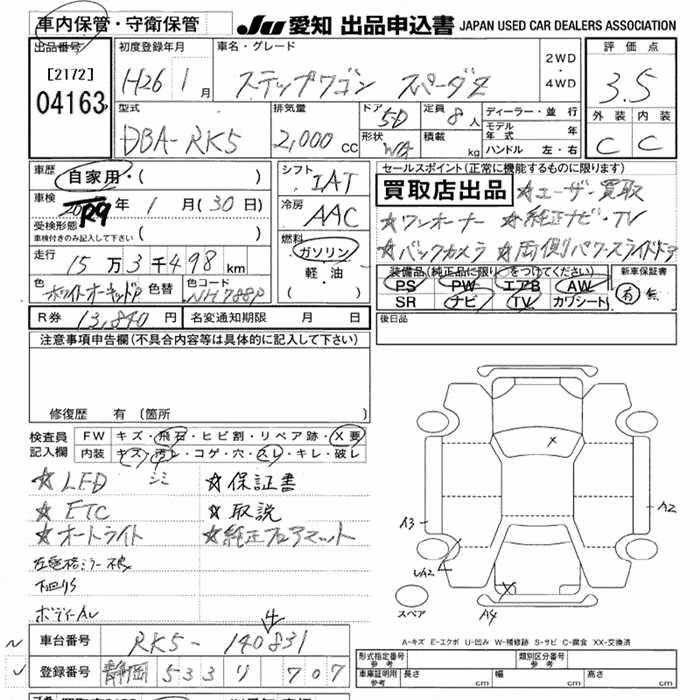 車内保管・守衛保管 JU 愛知 出品申込書 JAPAN USED CAR DEALERS ASSOCIATION
出品番号 初度登録年月 車名・グレード 2WD・4WD 評価点
[2172] H26 1月 ステップワゴン スパーダZ 3.5
04163
型式 排気量 ドア 5D 定員 8人 ディーラー・並行 外装 内装
DBA-RK5 2,000cc 形状 WA 積載 kg モデル年式 年 C C
ハンドル 左・右
車歴 自家用・( ) シフト IAT セールスポイント(正常に機能するものに限ります)
車検 R9年 1月(30日) 冷房 AAC 買取店出品 ☆ユーザー買取
受検形態 ☆ワンオーナー ☆純正ナビ・TV
車検付きのみ記入して下さい ( ) 燃料 ☆バックカメラ ☆両側パワースライドドア
走行 15万3千498km ガソリン・軽油 ( ) 装備品(純正品に限り○をつけてください) 新車保証書
色 ホワイトオーキッドP 色替 色コード NH788P PS PW エアB AW 有・無
SR ナビ TV カワシート
R券 13,840円 名変通知期限 月 日 後日品
注意事項申告欄(不具合内容等は具体的に記入して下さい)
修復歴 有(箇所
検査員記入欄 FW キズ・飛石・ヒビ割・リペア跡・X要
内装 キズ・汚レ・コゲ・穴・スレ・キレ・破レ
シミ
☆LED ☆保証書
☆ETC ☆取説
☆オートライト ☆純正フロアマット
下回りS
A3 A2
UA2
X
X
スペア A4
A-キズ E-エクボ U-凹み W-補修跡 S-サビ C-腐食 XX-交換済
車台番号 RK5-140831
4
登録番号 静岡 533 リ 707
形式指定番号 参考 類別区分番号 参考
車庫証明用 参考 長さ cm 幅 cm 高さ cm